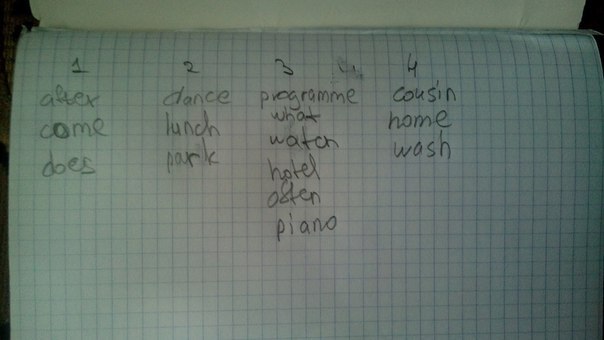 1 2 3 4
after dance programme cousin
come lunch what home
does park watch wash
hotel
often
piano